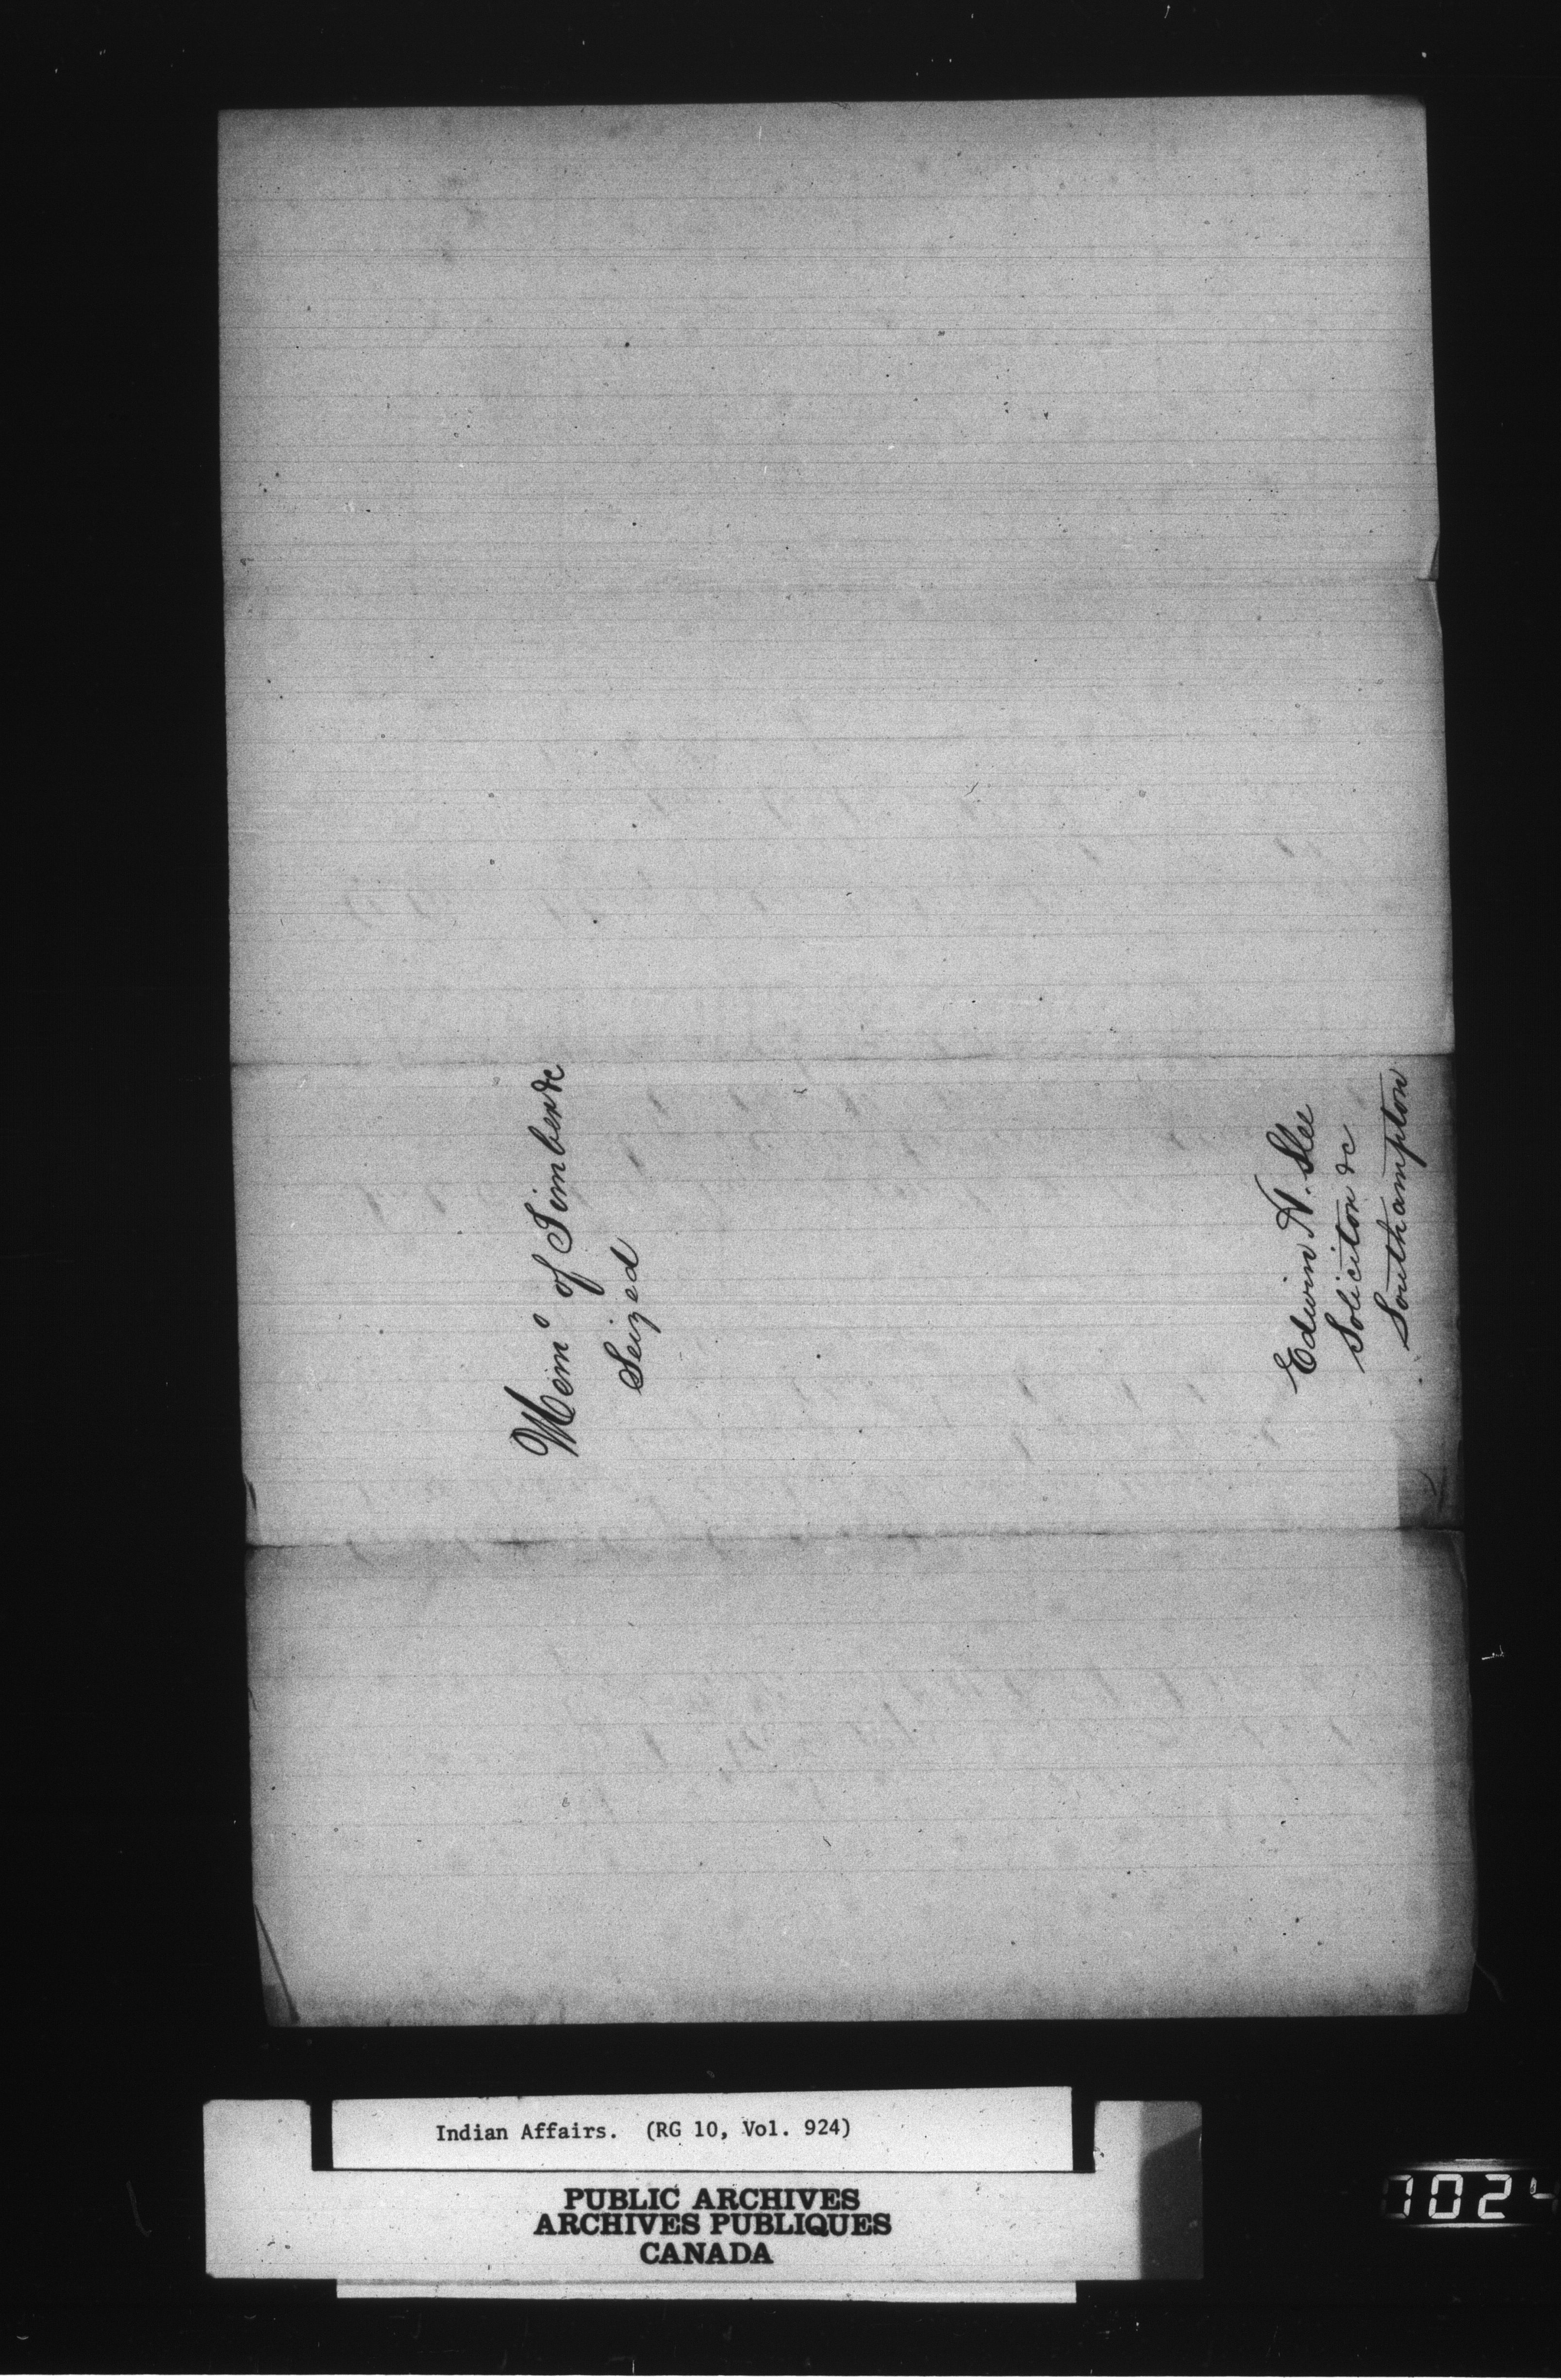 Memo of Timber &c
Seized
Edwin N. Slee
Solicitor &c
Southampton
Indian Affairs. (RG 10, Vol. 924)
PUBLIC ARCHIVES
ARCHIVES PUBLIQUES
CANADA